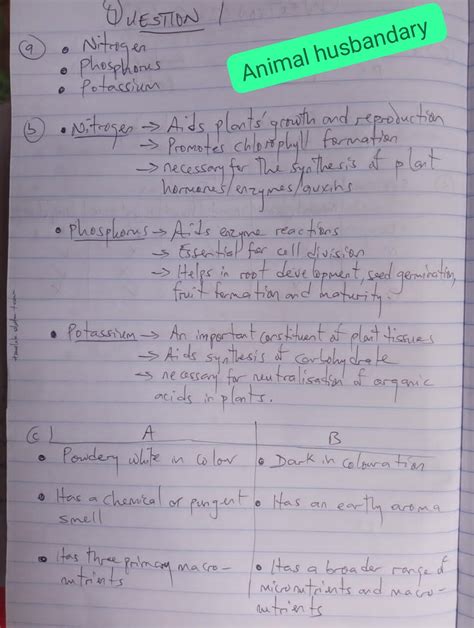 QUESTION 1
Animal husbandary
(a) • Nitrogen
• Phosphorus
• Potassium
(b) • Nitrogen → Aids plants' growth and reproduction
→ Promotes chlorophyll formation
→ necessary for the synthesis of plant
hormones/enzymes/auxins
• Phosphorus → Aids enzyme reactions
→ Essential for cell division
→ Helps in root development, seed germination,
fruit formation and maturity.
• Potassium → An important constituent of plant tissues
→ Aids synthesis of carbohydrate
→ necessary for neutralisation of organic
acids in plants.
(c) A B
• Powdery white in colour • Dark in colouration
• Has a chemical or pungent • Has an earthy aroma
smell
• Has three primary macro- • Has a broader range of
nutrients micronutrients and macro-
nutrients